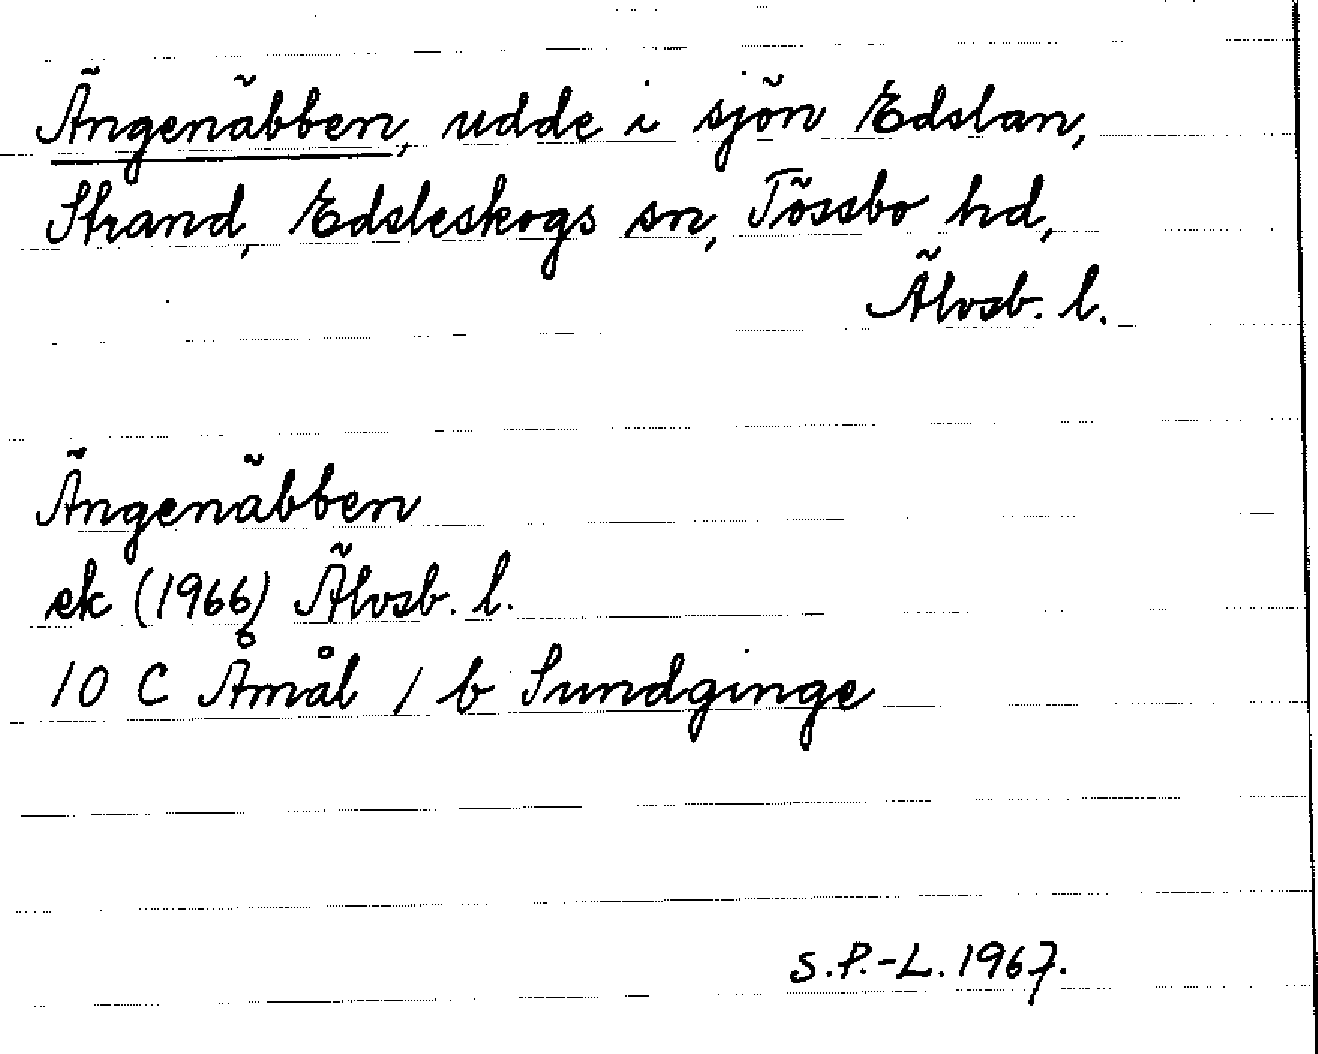 Ängenäbben, udde i sjön Edslan,
Strand, Edsleskogs sn, Tössbo hd,
Älvsb. l.
Ängenäbben
ek (1966) Älvsb. l.
10 C Åmål 1 b Sundginge
S.P.-L. 1967.